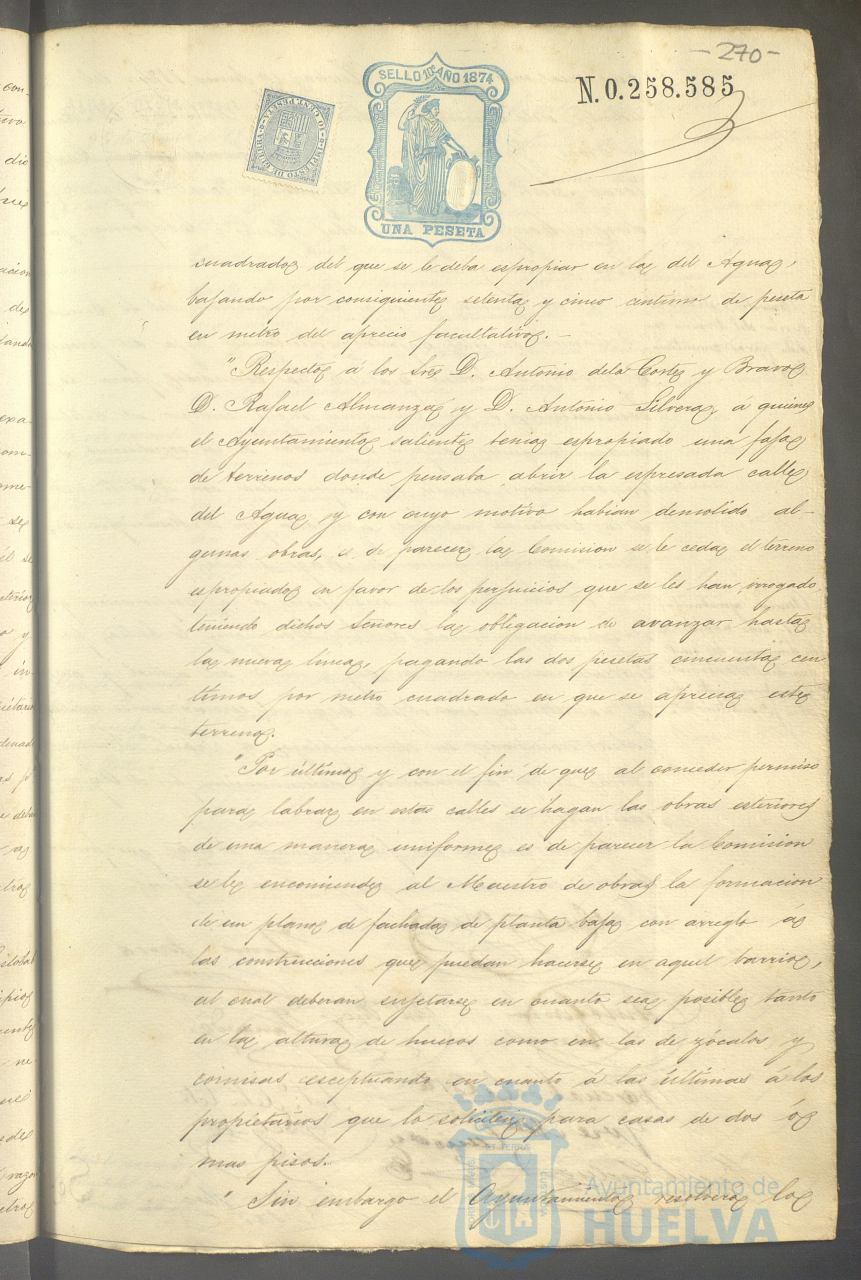 -270-
SELLO 10º AÑO 1874
N.0.258.585
10 CENT. PESETA
IMPUESTO DE GUERRA
UNA PESETA
cuadrado del que se le deba espropiar en la del Agua,
bajando por consiguiente setenta y cinco centimos de peseta
en metro del aprecio facultativo.—
"Respecto á los Sres D. Antonio dela Corte y Bravo
D. Rafael Almanza y D. Antonio Silvera, á quienes
el Ayuntamiento saliente tenia espropiado una faja
de terrenos donde pensaba abrir la espresada calle
del Agua, y con cuyo motivo habian demolido al-
gunas obras, es de parecer la Comision se le ceda el terreno
espropiado en favor de los perjuicios que se les han irrogado
teniendo dichos Señores la obligacion de avanzar hasta
la nueva linea, pagando las dos pesetas cincuenta cen
timos por metro cuadrado en que se aprecia este
terreno.
"Por último y con el fin de que al conceder permiso
para labrar en estas calles se hagan las obras esteriores
de una manera uniforme es de parecer la Comision
se le encomiende al Maestro de obras la formacion
de un plano de fachada de planta baja con arreglo á
las construcciones que puedan hacerse en aquel barrio,
al cual deberan sujetarse en cuanto sea posible tanto
en la altura de huecos como en las de zócalos y
cornisas esceptuando en cuanto á las últimas á los
propietarios que lo soliciten para casas de dos ó
mas pisos.
" Sin embargo el Ayuntamiento resolvera lo
Ayuntamiento de
HUELVA